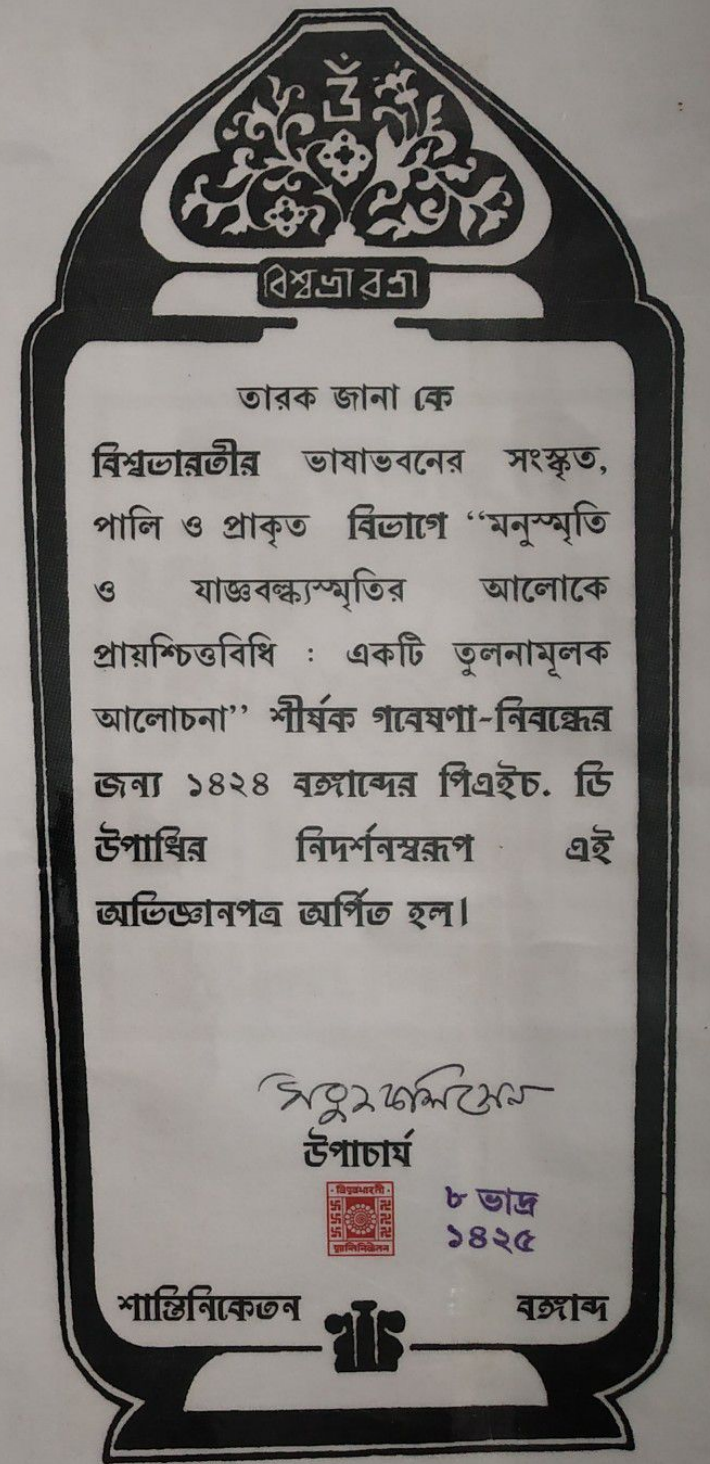 ওঁ
বিশ্বভারতী
তারক জানা কে
বিশ্বভারতীর ভাষাভবনের সংস্কৃত,
পালি ও প্রাকৃত বিভাগে “মনুস্মৃতি
ও যাজ্ঞবল্ক্যস্মৃতির আলোকে
প্রায়শ্চিত্তবিধি : একটি তুলনামূলক
আলোচনা” শীর্ষক গবেষণা-নিবন্ধের
জন্য ১৪২৪ বঙ্গাব্দের পিএইচ. ডি
উপাধির নিদর্শনস্বরূপ এই
অভিজ্ঞানপত্র অর্পিত হল।
উপাচার্য
৮ ভাদ্র
১৪২৫
শান্তিনিকেতন বঙ্গাব্দ